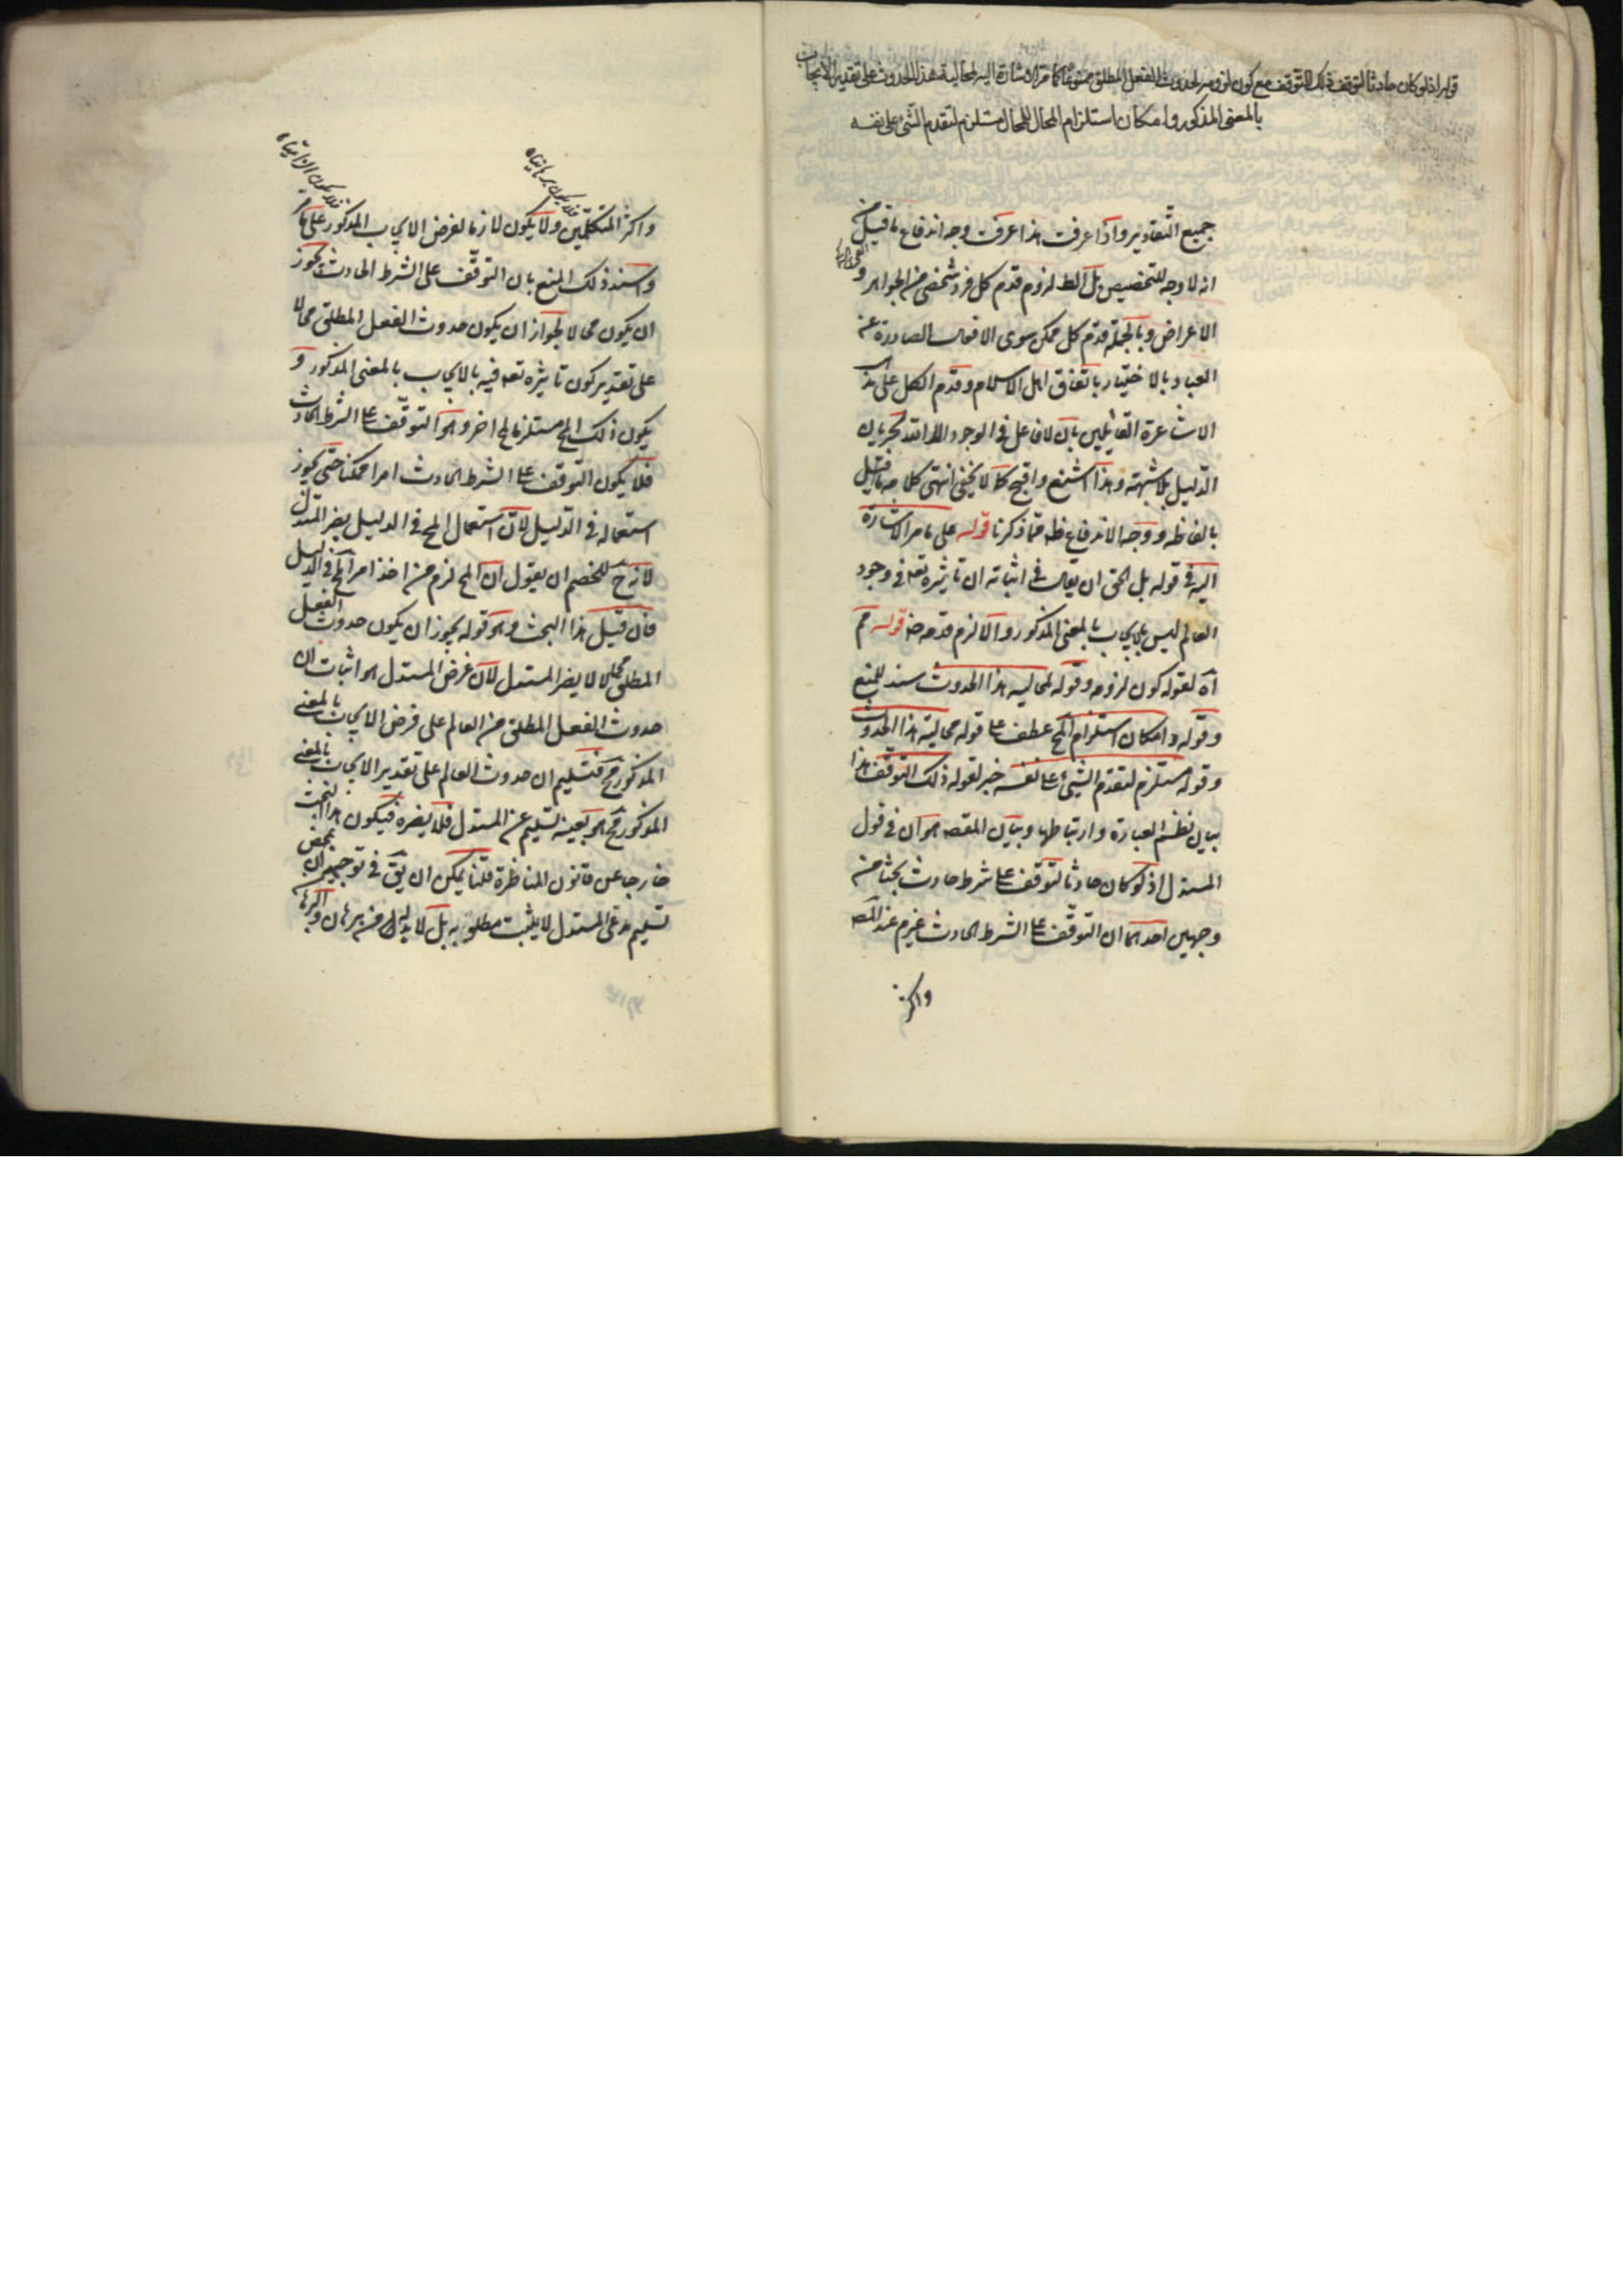 قوله اذ لو كان حادثا لتوقف ذلك التوقف مع كون لزومه لحدوث الفعل المطلق ممنوعا كما مر الاشارة اليه لمحالية هذا الحدوث على تقدير الايجاب
بالمعنى المذكور وامكان استلزام المحال للمحال مستلزم لتقدم الشئ على نفسه
جميع التقادير واذا عرفت هذا عرفت وجه اندفاع ما قيل من
انه لا وجه للتخصيص بل الظ لزوم قدم كل فرد شخصى من الجواهر و
الاعراض وبالجملة قدم كل ممكن سوى الافعال الصادرة عن
العباد بالاختيار باتفاق اهل الاسلام وقدم الكل على
الاشاعرة القايلين بان لا فاعل فى الوجود الا الله لجريان
الدليل بلا شبهة وهذا اشنع واقبح كما لا يخفى انتهى كلامه ما قيل
بالفاظه ووجه الاندفاع ظه مما ذكرنا قوله على ما مر الاشارة
اليه فى قوله بل الحق ان يقال فى اثباته ان تاثيره تعه فى وجود
العالم ليس بالايجاب بالمعنى المذكور والا لزم قدمه قوله مم
آه لقوله كون لزومه وقوله لمحاليه هذا الحدوث سند للمنع
وقوله وامكان استلزام المح عطف على قوله محالية هذا الحدوث
وقوله مستلزم لتقدم الشئ على نفسه خبر لقوله ذلك التوقف هذا
بيان نظم العبارة وارتباطها وبيان المقصه هو ان فى قول
المستدل اذ لو كان حادثا لتوقف على شرط حادث بحثا من
وجهين احدهما ان التوقف على الشرط الحادث غير م عند المصه
واكثر
فلا يكون برهانياه
فلا يكون الزامياه
واكثر المتكلمين ولا يكون لازما لفرض الايجاب المذكور على ما مر
واسند ذلك المنع بان التوقف على الشرط الحادث يجوز
ان يكون محالا لجواز ان يكون حدوث الفعل المطلق محالا
على تقدير كون تاثيره تعه فيه بالايجاب بالمعنى المذكور و
يكون ذلك المح مستلزما لمح اخر وهو التوقف على الشرط الحادث
فلا يكون التوقف على الشرط الحادث امرا ممكنا حتى يجوز
استعماله فى الدليل لان استعمال المح فى الدليل يضر المستدل
لانه ح للخصم ان يقول ان المح لزم من اخذ امر مح فى الدليل
فان قيل هذا البحث وهو قوله يجوز ان يكون حدوث الفعل
المطلق محالا لا يضر المستدل لان غرض المستدل هو اثبات ان
حدوث الفعل المطلق من العالم على فرض الايجاب بالمعنى
المذكور مح فتسليم ان حدوث العالم على تقدير الايجاب بالمعنى
المذكور مح هو بعينه تسليم عن المستدل فلا يضره فيكون هذا البحث
خارجا عن قانون المناظرة قلنا يمكن ان يقق فى توجيهه ان بمحض
تسليم مدعى المستدل لا يثبت مطلوبه بل لا بد له من برهان والبرهان